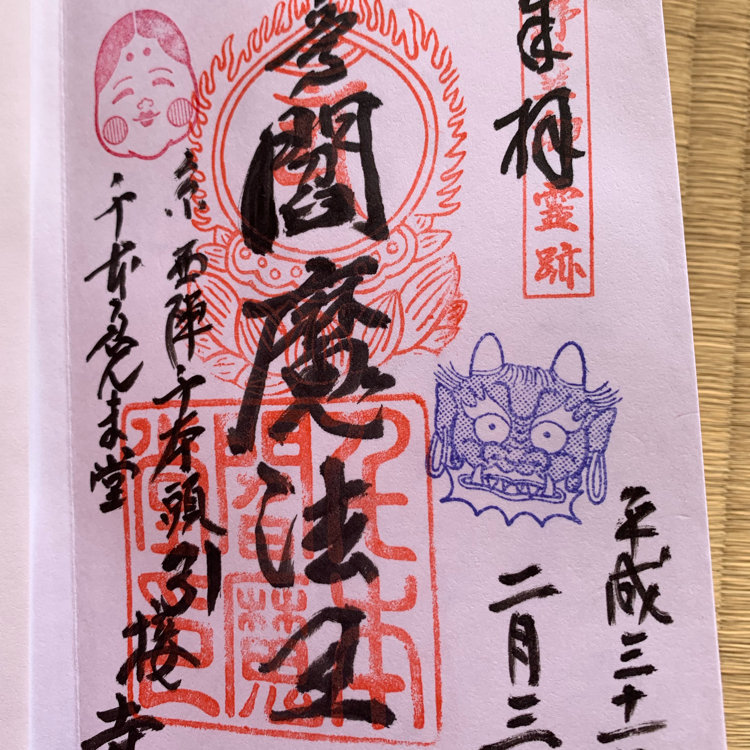 平成三十一
二月三
奉拝
霊跡
閻魔法王
京西陣千本頭引接寺
千本ゑんま堂